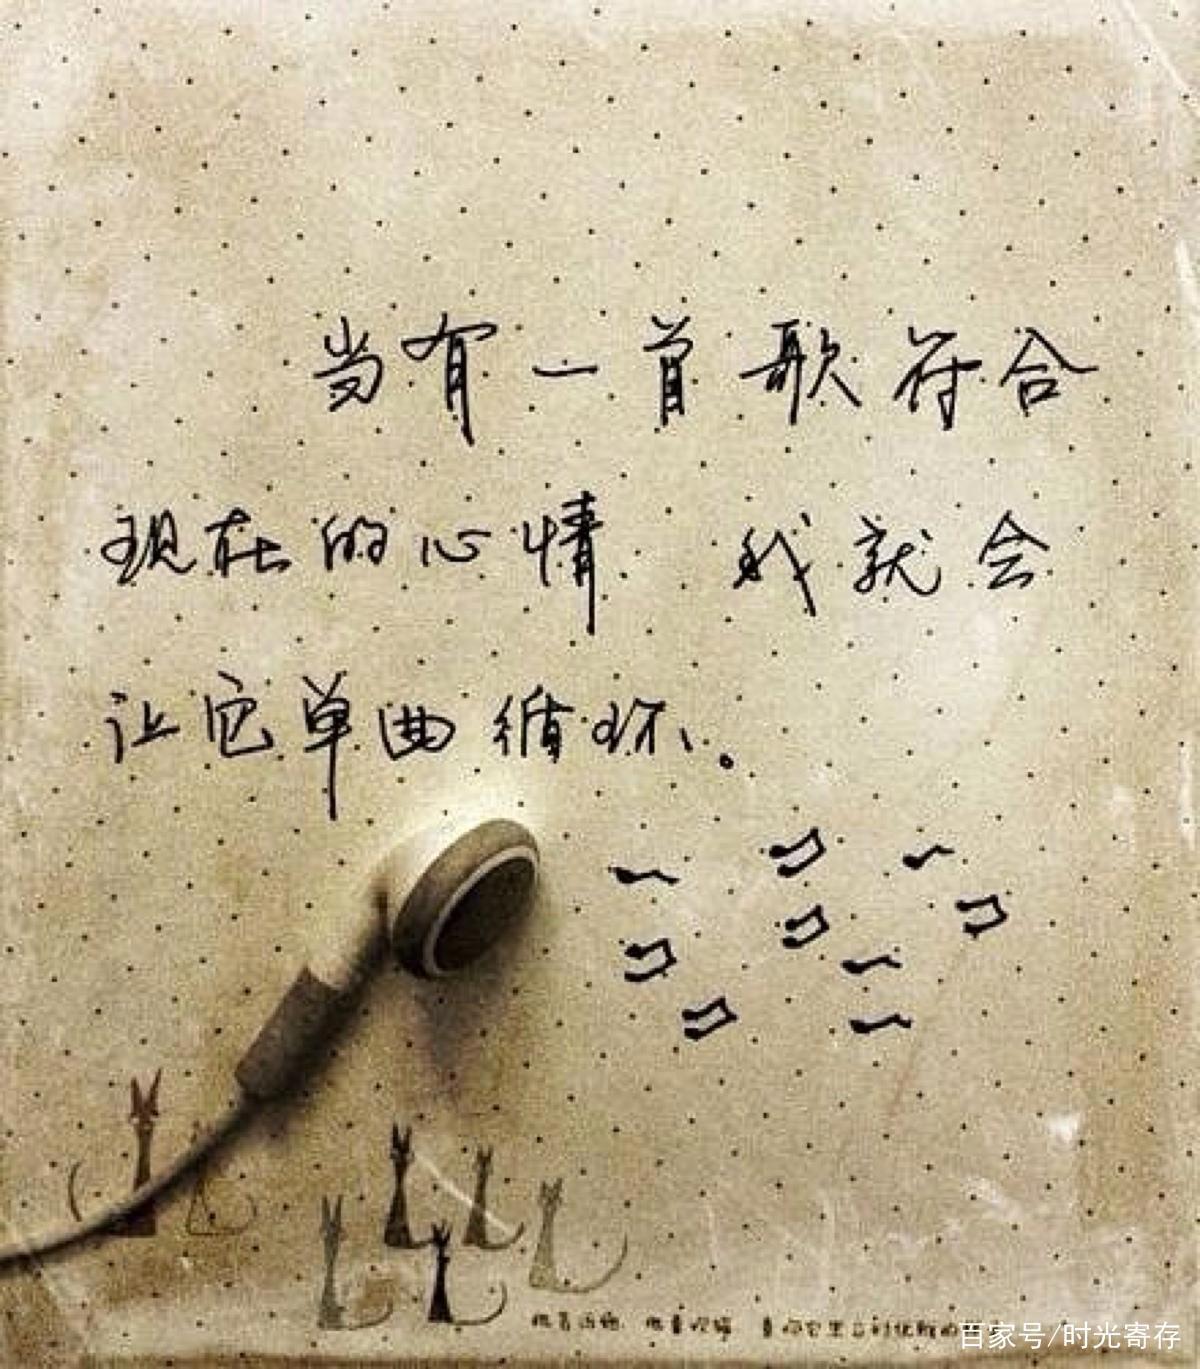 当有一首歌符合
现在的心情 我就会
让它单曲循环、。
百家号/时光寄存